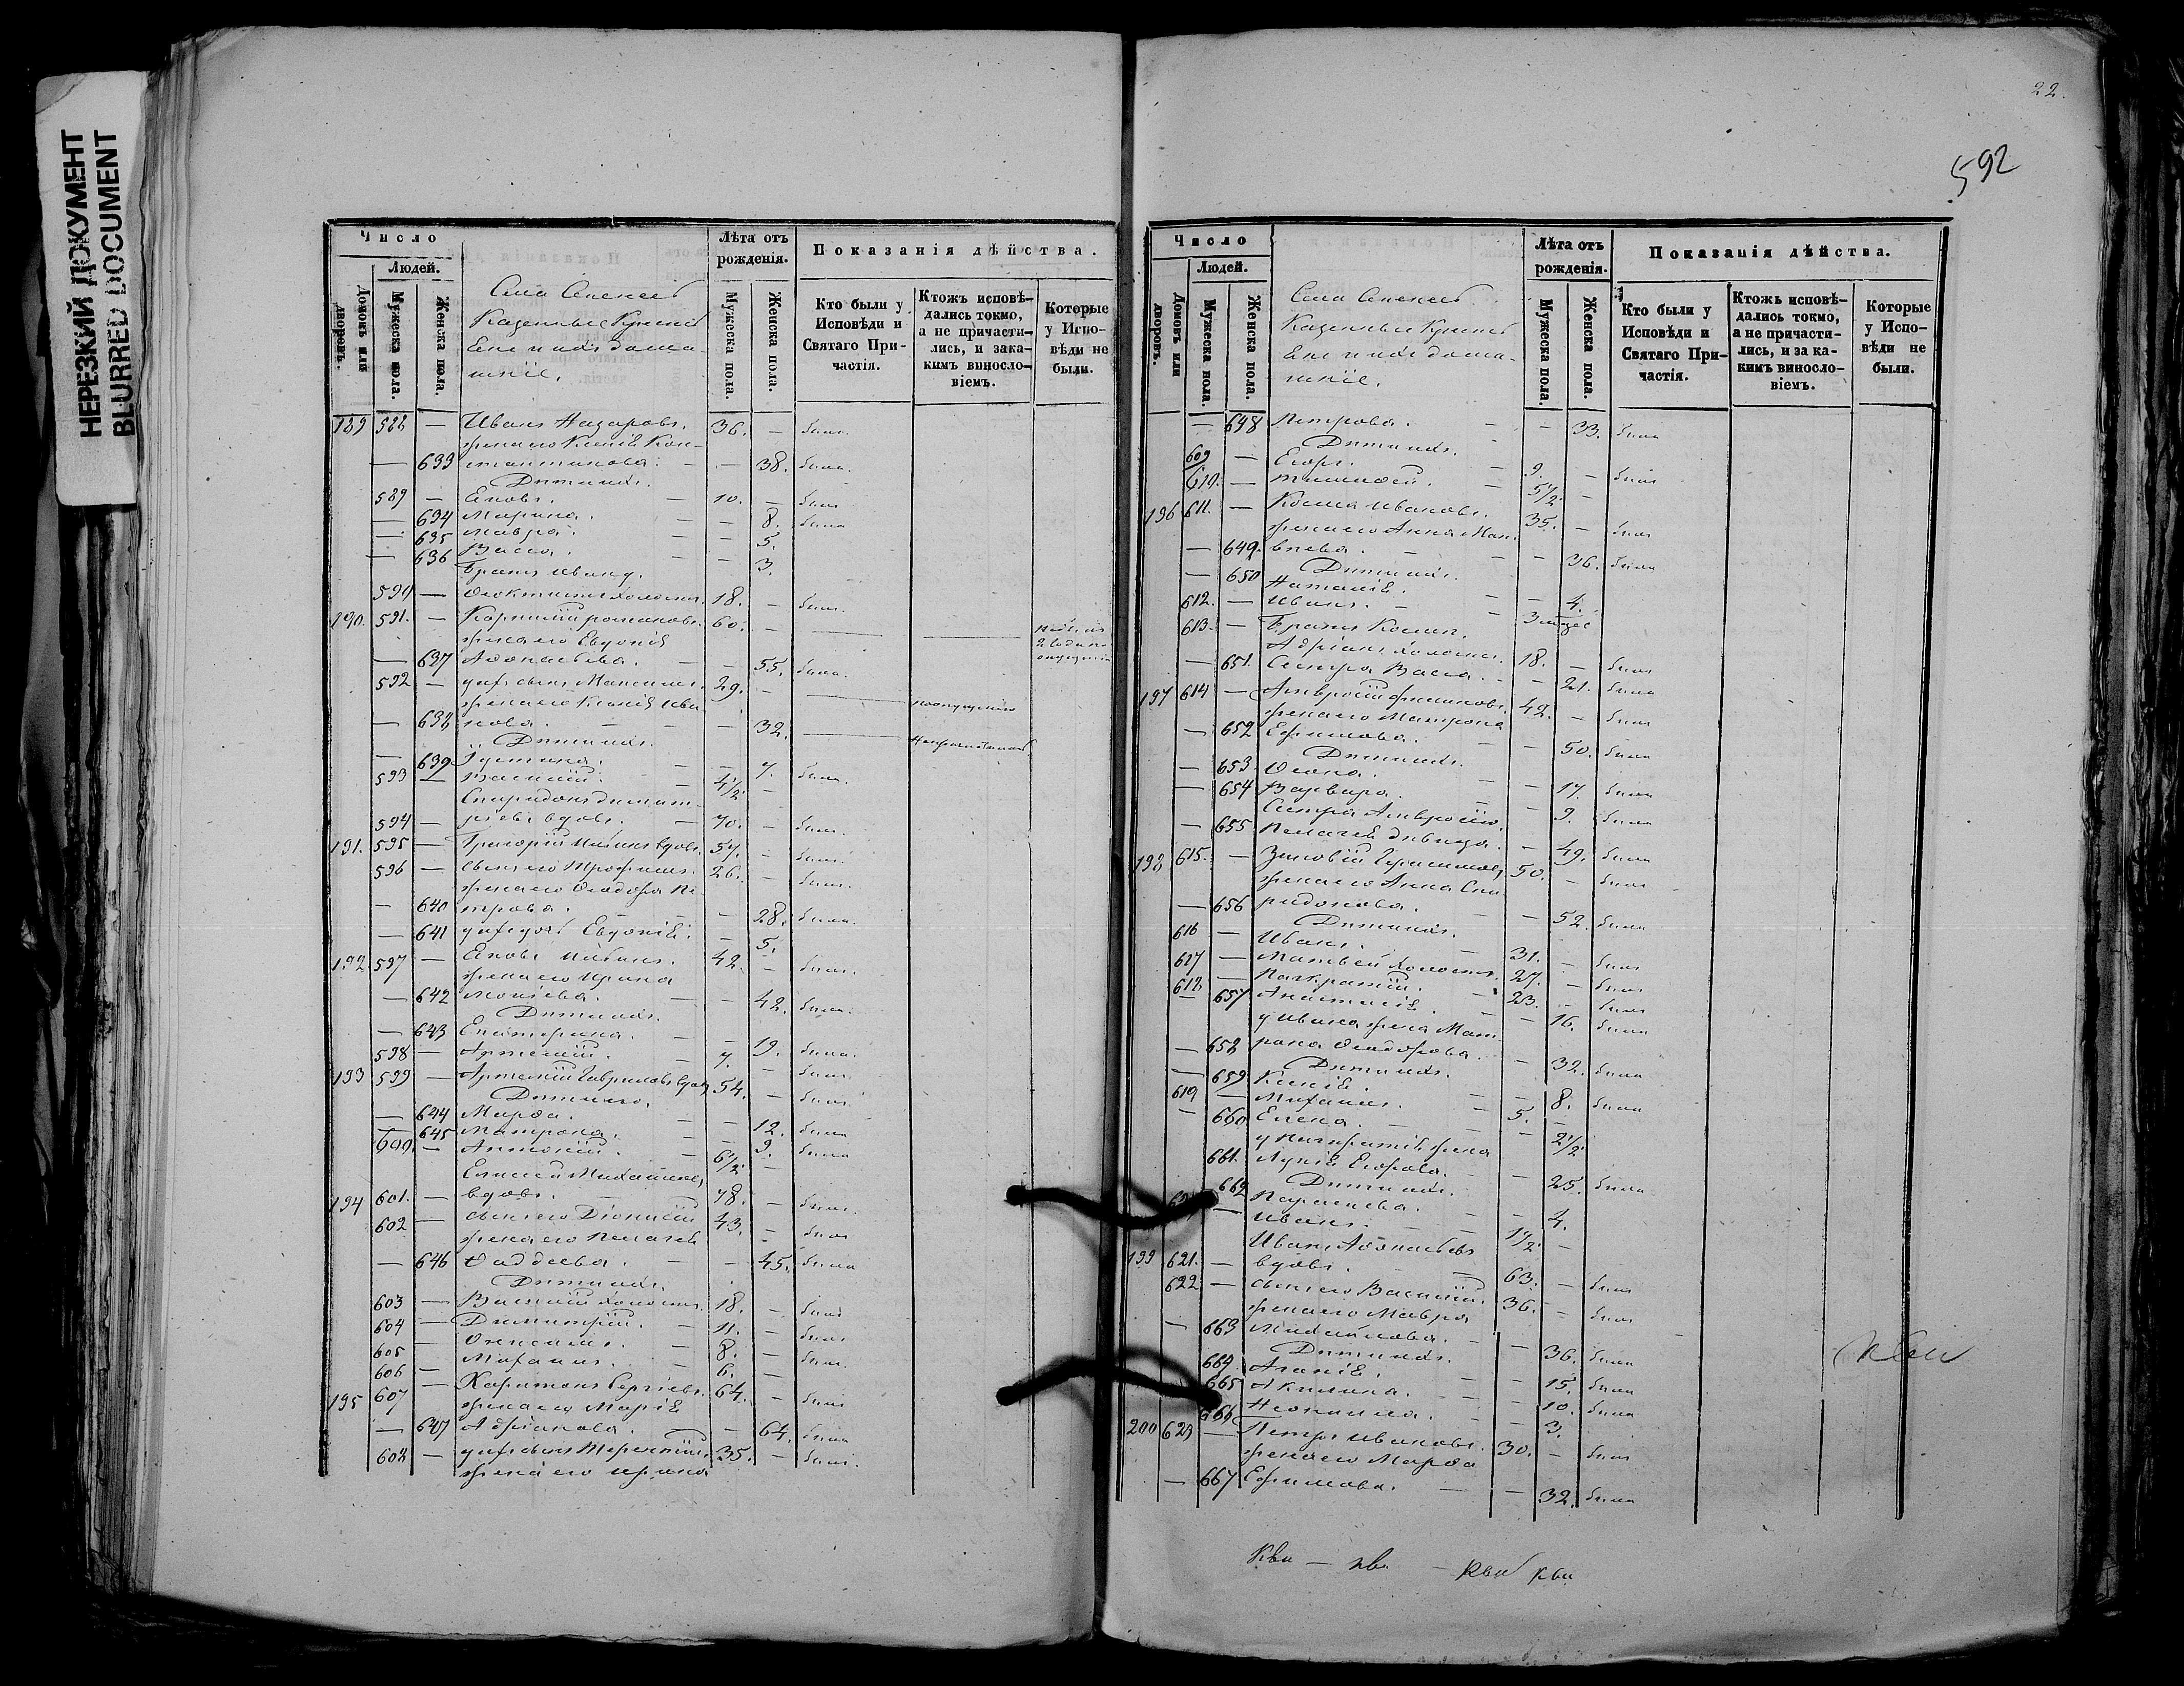 НЕРЕЗКИЙ ДОКУМЕНТ
BLURRED DOCUMENT
Число
Людей.
Домовъ или дворовъ.
Мужеска пола.
Женска пола.
Села
Казенные
и ихъ дома-
шніе.
Лѣта отъ рожденія.
Мужеска пола.
Женска пола.
Показанія дѣйства.
Кто были у Исповѣди и Святаго Причастія.
Ктожъ исповѣ-
дались токмо,
а не причасти-
лись, и зака-
кимъ винosло-
віемъ.
Которые
у Испо-
вѣди не
были.
189 588 — Иванъ Назаровъ. 36. — былъ.
жена его Ксенія Кон-
— 633 стантинова. — — 38. была.
Дѣти ихъ.
589 — Яковъ. — 10. — былъ
— 634 Марина. — — 8. была
— 635 Мавра. — — 5.
— 636 Васса. — — 3.
Братъ Ивану.
590 — Ѳеоктистъ холостъ. 18. — былъ.
190. 591. — Романовъ. 60. —
жена его Евдокія
— 637 Аѳонасьева. — — 55. была.
592 — ихъ сынъ Максимъ. 29. — по опущенію
жена его Ксенія Ива
— 638 нова. — — 32.
Дѣти ихъ.
— 639 Іустина. — — 7. была.
593 — Василій. 4 1/2 —
Спиридонъ Димит-
594 — ріевъ вдовъ. — 70. — былъ.
191. 595 — Григорій вдовъ. 57. — былъ.
596 — сынъ его Трофимъ. 26. — былъ.
жена его Ѳеодора Пе-
— 640 трова. — — 28. была.
— 641 ихъ дочь Евдокія. — 5.
192. 597 — Яковъ 42. — былъ.
жена его Ирина
— 642 Моисеева. — — 42. была.
Дѣти ихъ.
— 643 Екатерина. — — 19. была.
598 — Артемій. — 7. — былъ.
193 599 — Артемій Гавриловъ вдовъ 54. — былъ.
Дѣти его.
— 644 Марѳа. — — 12. была
— 645 Матрона. — — 9. была
600. — Антоній. — 6 1/2 —
Елисей Михайловъ
194 601. — вдовъ. — 78. — былъ.
602 — сынъ его Діонисій 43. — былъ
жена его Пелагея
— 646 Ѳаддеева. — — 45. была
Дѣти ихъ.
603 — Василій холостъ. 18. — былъ
604 — Димитрій. — 11. — былъ
605 — — 8. — былъ.
606 — Михаилъ. — 6. —
195 607 — Харитонъ Сергіевъ. 64. — былъ
жена его Марія
— 647 Адріанова. — — 64. была
608 — ихъ сынъ Терентій. 35. — былъ.
жена его Ирина
22.
592
Число
Людей.
Домовъ или дворовъ.
Мужеска пола.
Женска пола.
Села
Казенные
и ихъ дома-
шніе.
Лѣта отъ рожденія.
Мужеска пола.
Женска пола.
Показанія дѣйства.
Кто были у Исповѣди и Святаго Причастія.
Ктожь исповѣ-
дались токмо,
а не причасти-
лись, и за ка-
кимъ винosло-
віемъ.
Которые
у Испо-
вѣди не
были.
— 648 Петрова. — — 33. была
Дѣти ихъ.
609 — Егоръ. — 9. — былъ
610. — Тимоѳей. — 5 1/2 —
196 611. — Косма Ивановъ. 35. — былъ
жена его Анна
— 649. — — 36. была
Дѣти ихъ.
— 650 Наталія. — — 4.
612. — Иванъ. —
613. — Братъ Космы.
Адріанъ холостъ. 18. — былъ
— 651. Сестра Васса. — — 21. была
197 614 — Амвросій 42. — былъ
жена его Матрона
— 652 Ефимова. — — 50. была
Дѣти ихъ.
— 653. — 17. была
— 654 Варвара. — — 9. была
Сестра Амвросію
— 655 Пелагея дѣвица. — 49. была
198 615. — Зиновій Герасимовъ 50. — былъ
жена его Анна Спи
— 656 ридонова. — — 52. была
Дѣти ихъ.
616 — Иванъ. — 31. — былъ
617 — Матвей холостъ. 27. — былъ
618 — Панкратій. — 23. — былъ
— 657 Анастасія. — — 16. была
у Ивана жена Мат
— 658 рона Ѳеодорова. — 32. была
Дѣти ихъ.
— 659 Ксенія. — — 8. была
619 — Михаилъ. — 5. —
— 660 Елена. — — 2 1/2
у Панкратія жена
661. Егорова. — — 25. была
Дѣти ихъ.
662 Параскева. — — 4.
— Иванъ. — 1 1/2 —
Иванъ Аѳонасьевъ
199 621. — вдовъ. — 63. — былъ
622 — сынъ его Василій. 36. — былъ
жена его Мавра
— 663 Михайлова. — — 36. была
Дѣти ихъ.
664. Агаѳія. — — 15. была
665 Акилина. — — 10. была
666 Неонила. — — 3.
200 623 — Петръ Ивановъ. 30. — былъ
жена его Марѳа
— 667 Ефимова. — — 32. была